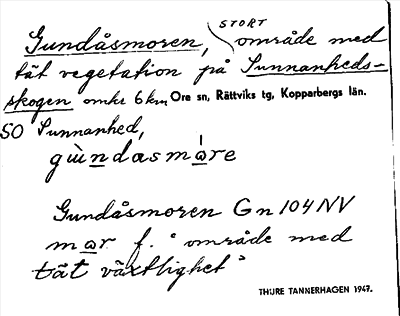 STORT
Gundåsmoren, område med
tät vegetation på Sunnanheds-
skogen omkr 6 km Ore sn, Rättviks tg, Kopparbergs län.
SO Sunnanhed,
gùndasmáre
Gundåsmoren Gn 104 NV
mar f. "område med
tät växtlighet"
THURE TANNERHAGEN 1947.